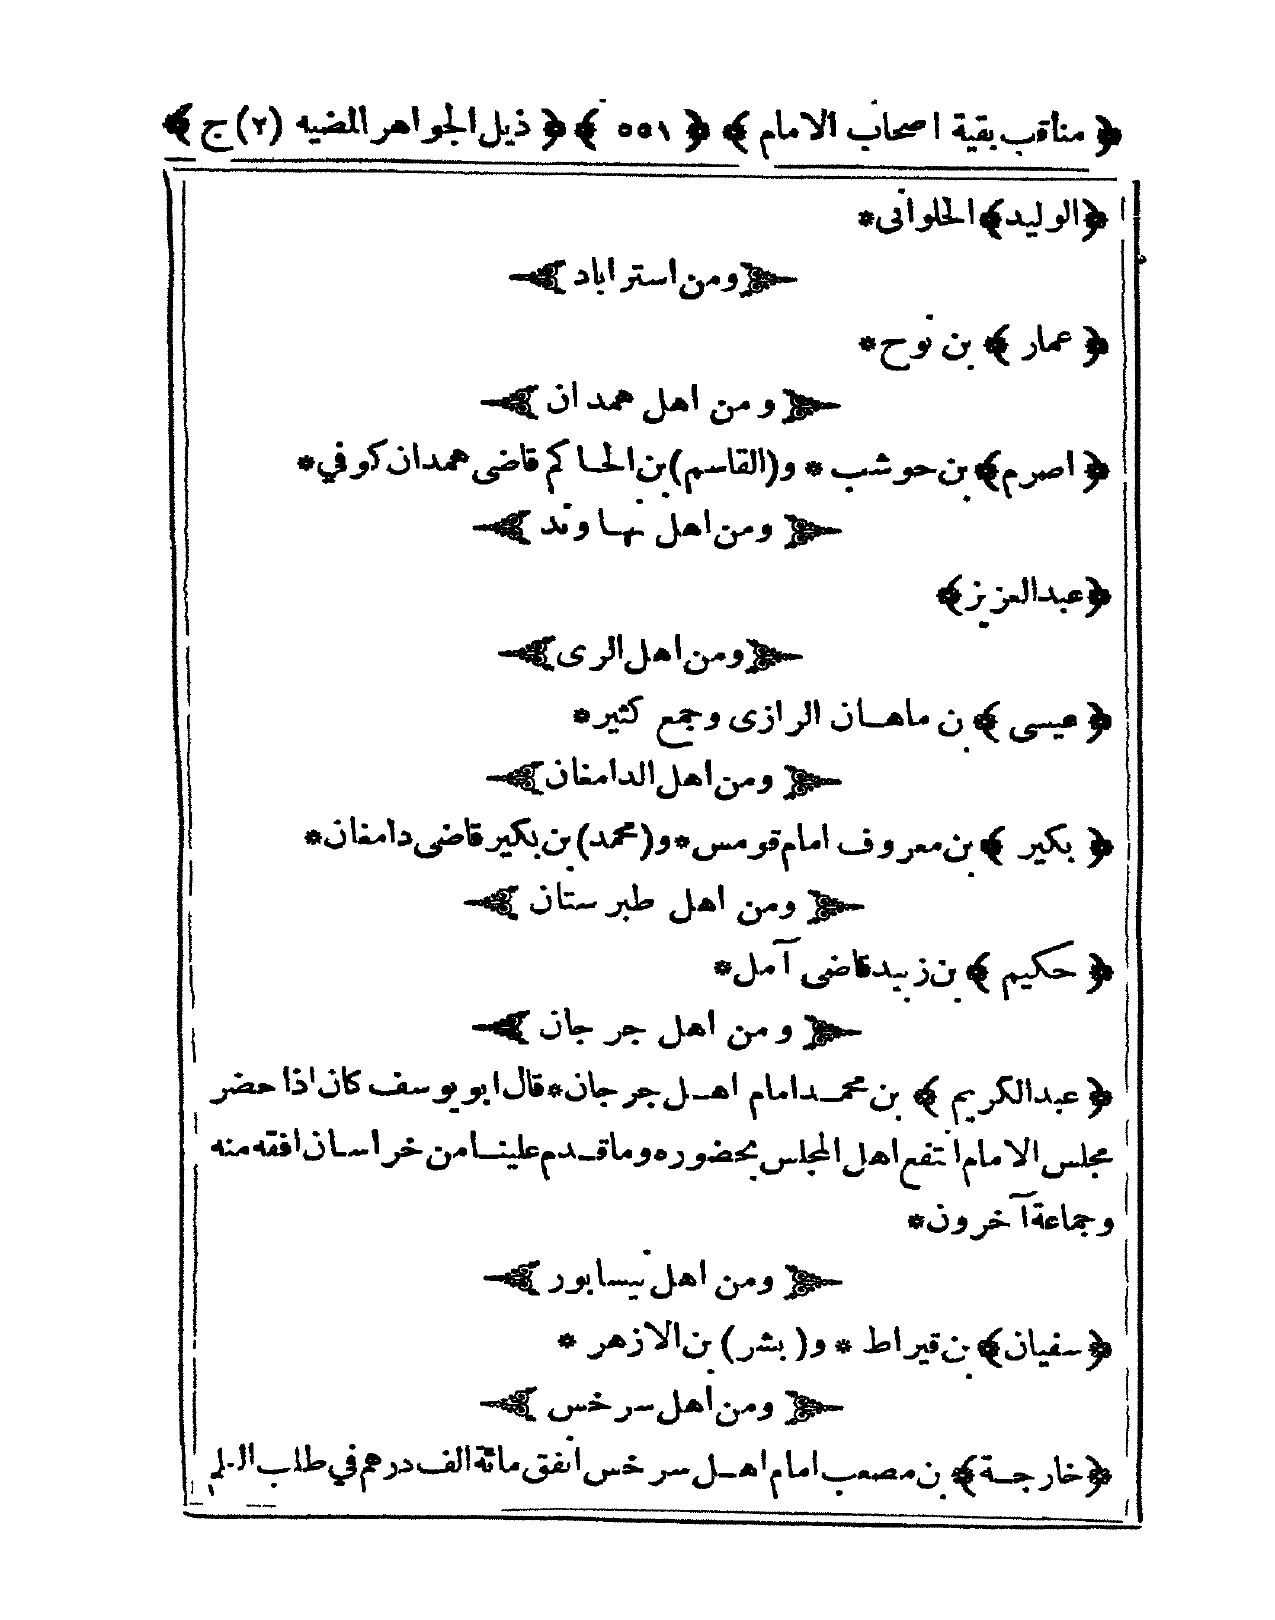 ﴿ مناقب بقية اصحاب الامام ﴾ ﴿ ٥٥١ ﴾ ﴿ ذيل الجواهر المضيه (٢) ج ﴾
﴿الوليد﴾ الحلوانى *
ومن استراباد
﴿ عمار ﴾ بن نوح *
ومن اهل همدان
﴿ اصرم ﴾ بن حوشب * و(القاسم) بن الحاكم قاضى همدان كوفي *
ومن اهل نهاوند
﴿عبدالعزيز﴾
ومن اهل الرى
﴿ عيسى ﴾ بن ماهان الرازى وجمع كثير *
ومن اهل الدامغان
﴿ بكير ﴾ بن معروف امام قومس * و(محمد) بن بكير قاضى دامغان *
ومن اهل طبرستان
﴿ حكيم ﴾ بن زيد قاضى آمل *
ومن اهل جرجان
﴿ عبدالكريم ﴾ بن محمد امام اهل جرجان * قال ابو يوسف كان اذا حضر
مجلس الامام انتفع اهل المجلس بحضوره وماقدم علينا من خراسان افقه منه
وجماعة آخرون *
ومن اهل نيسابور
﴿ سفيان ﴾ بن قيراط * و( بشر ) بن الازهر *
ومن اهل سرخس
﴿ خارجة ﴾ بن مصعب امام اهل سرخس انفق مائة الف درهم في طلب العلم